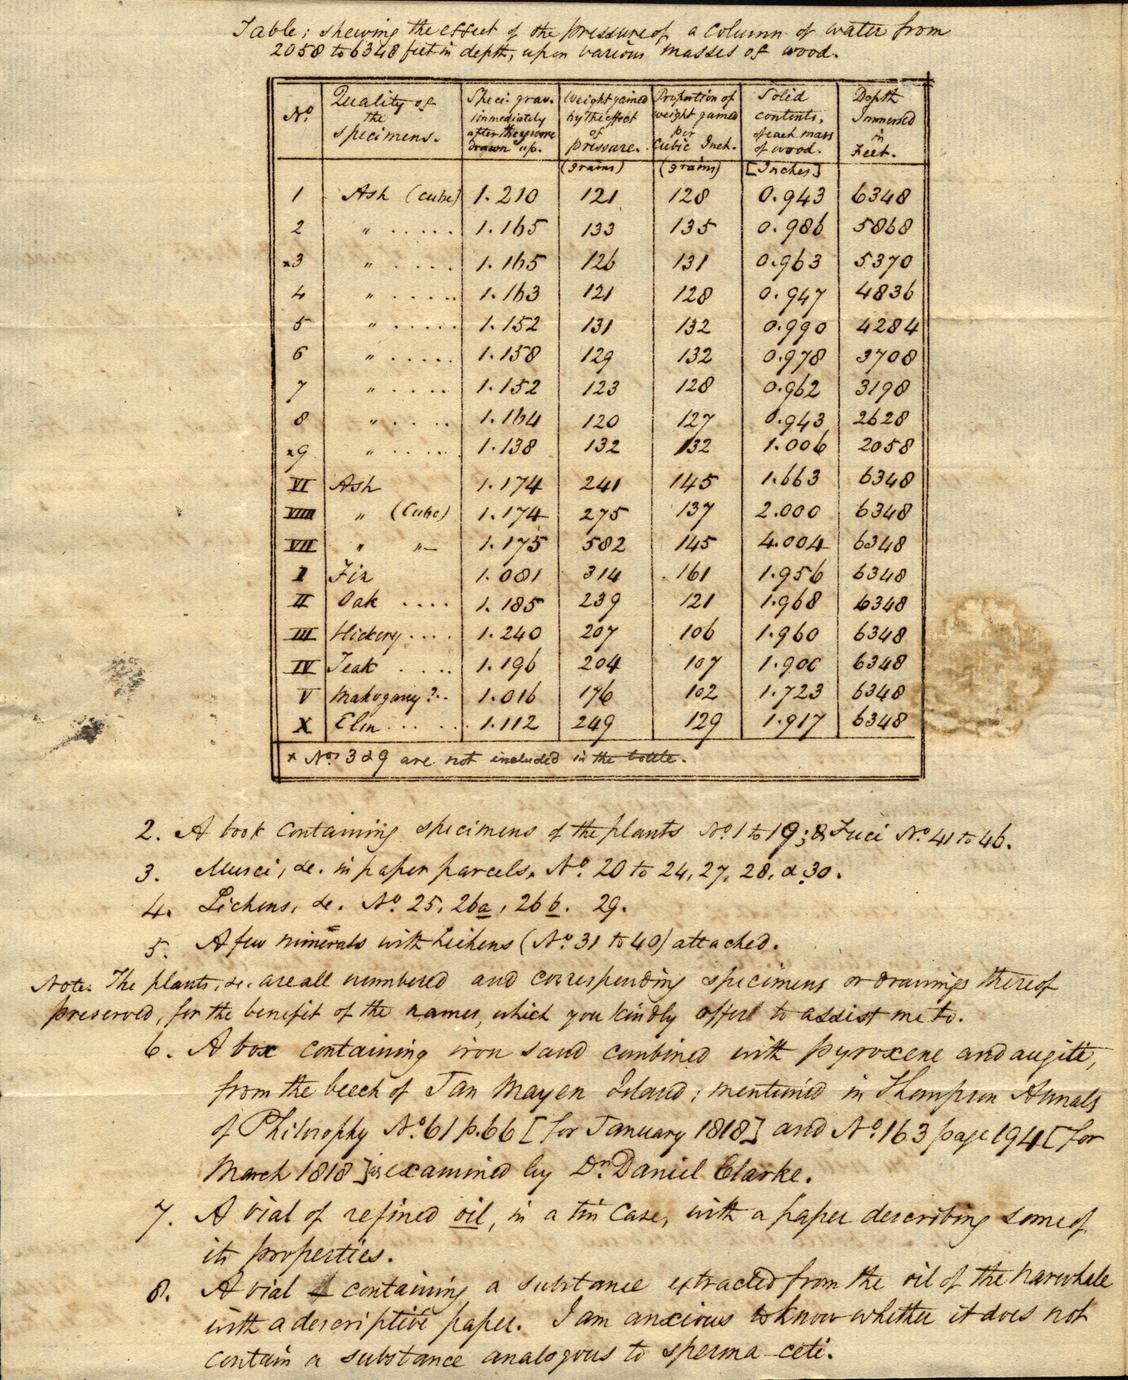 Table; shewing the effect of the pressure of a column of water from
2058 to 6348 feet in depth, upon various masses of wood.
No. | Quality of the specimens. | Speci. grav. immediately after they were drawn up. | Weight gained by the effect of pressure. | Proportion of weight gained per Cubic Inch. | Solid contents, of each mass of wood. | Depth Immersed in Feet.
(grains) (grains) [Inches]
1 Ash (cube) 1.210 121 128 0.943 6348
2 " ..... 1.165 133 135 0.986 5868
x3 " .... 1.165 126 131 0.963 5370
4 " ..... 1.163 121 128 0.947 4836
5 " ..... 1.152 131 132 0.990 4284
6 " ..... 1.158 129 132 0.978 3708
7 " .... 1.152 123 128 0.962 3198
8 " ..... 1.164 120 127 0.943 2628
x9 " ..... 1.138 132 132 1.006 2058
VI Ash 1.174 241 145 1.663 6348
VIIII " (Cube) 1.174 275 137 2.000 6348
VII " " 1.175 582 145 4.004 6348
I Fir 1.081 314 161 1.956 6348
II Oak .... 1.185 239 121 1.968 6348
III Hickory .... 1.240 207 106 1.960 6348
IV Teak .... 1.196 204 107 1.900 6348
V Mahogany?.. 1.016 176 102 1.723 6348
X Elm .... 1.112 249 129 1.917 6348
x Nos. 3 & 9 are not included in the bottle.
2. A book containing specimens of the plants No. 1 to 19; & Fuci No. 41 to 46.
3. Musci, &c. in paper parcels. No. 20 to 24, 27, 28, & 30.
4. Lichens, &c. No. 25, 26a, 26b. 29.
5. A few minerals with Lichens (No. 31 to 40) attached.
Note. The plants, &c. are all numbered and corresponding specimens or drawings thereof
preserved, for the benefit of the names, which you kindly offer to assist me to.
6. A box containing iron sand combined with pyroxene and augite,
from the beech of Jan Mayen Island; mentioned in Thompson Annals
of Philosophy No. 61 p. 66 [for January 1818] and No. 163 page 194 [for
March 1818] examined by Dr. Daniel Clarke.
7. A vial of refined oil, in a tin case, with a paper describing some of
its properties.
8. A vial containing a substance extracted from the oil of the narwhale
with a descriptive paper. I am anxious to know whether it does not
contain a substance analogous to sperma-ceti.